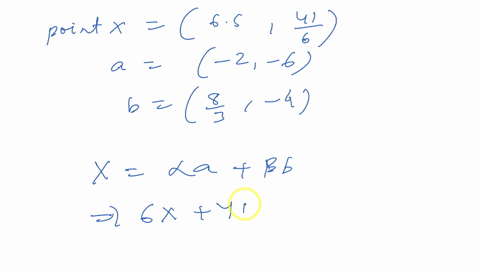 point X = (6.5, 41/6)
a = (-2, -6)
b = (8/3, -4)
X = αa + βb
⇒ 6X + 41